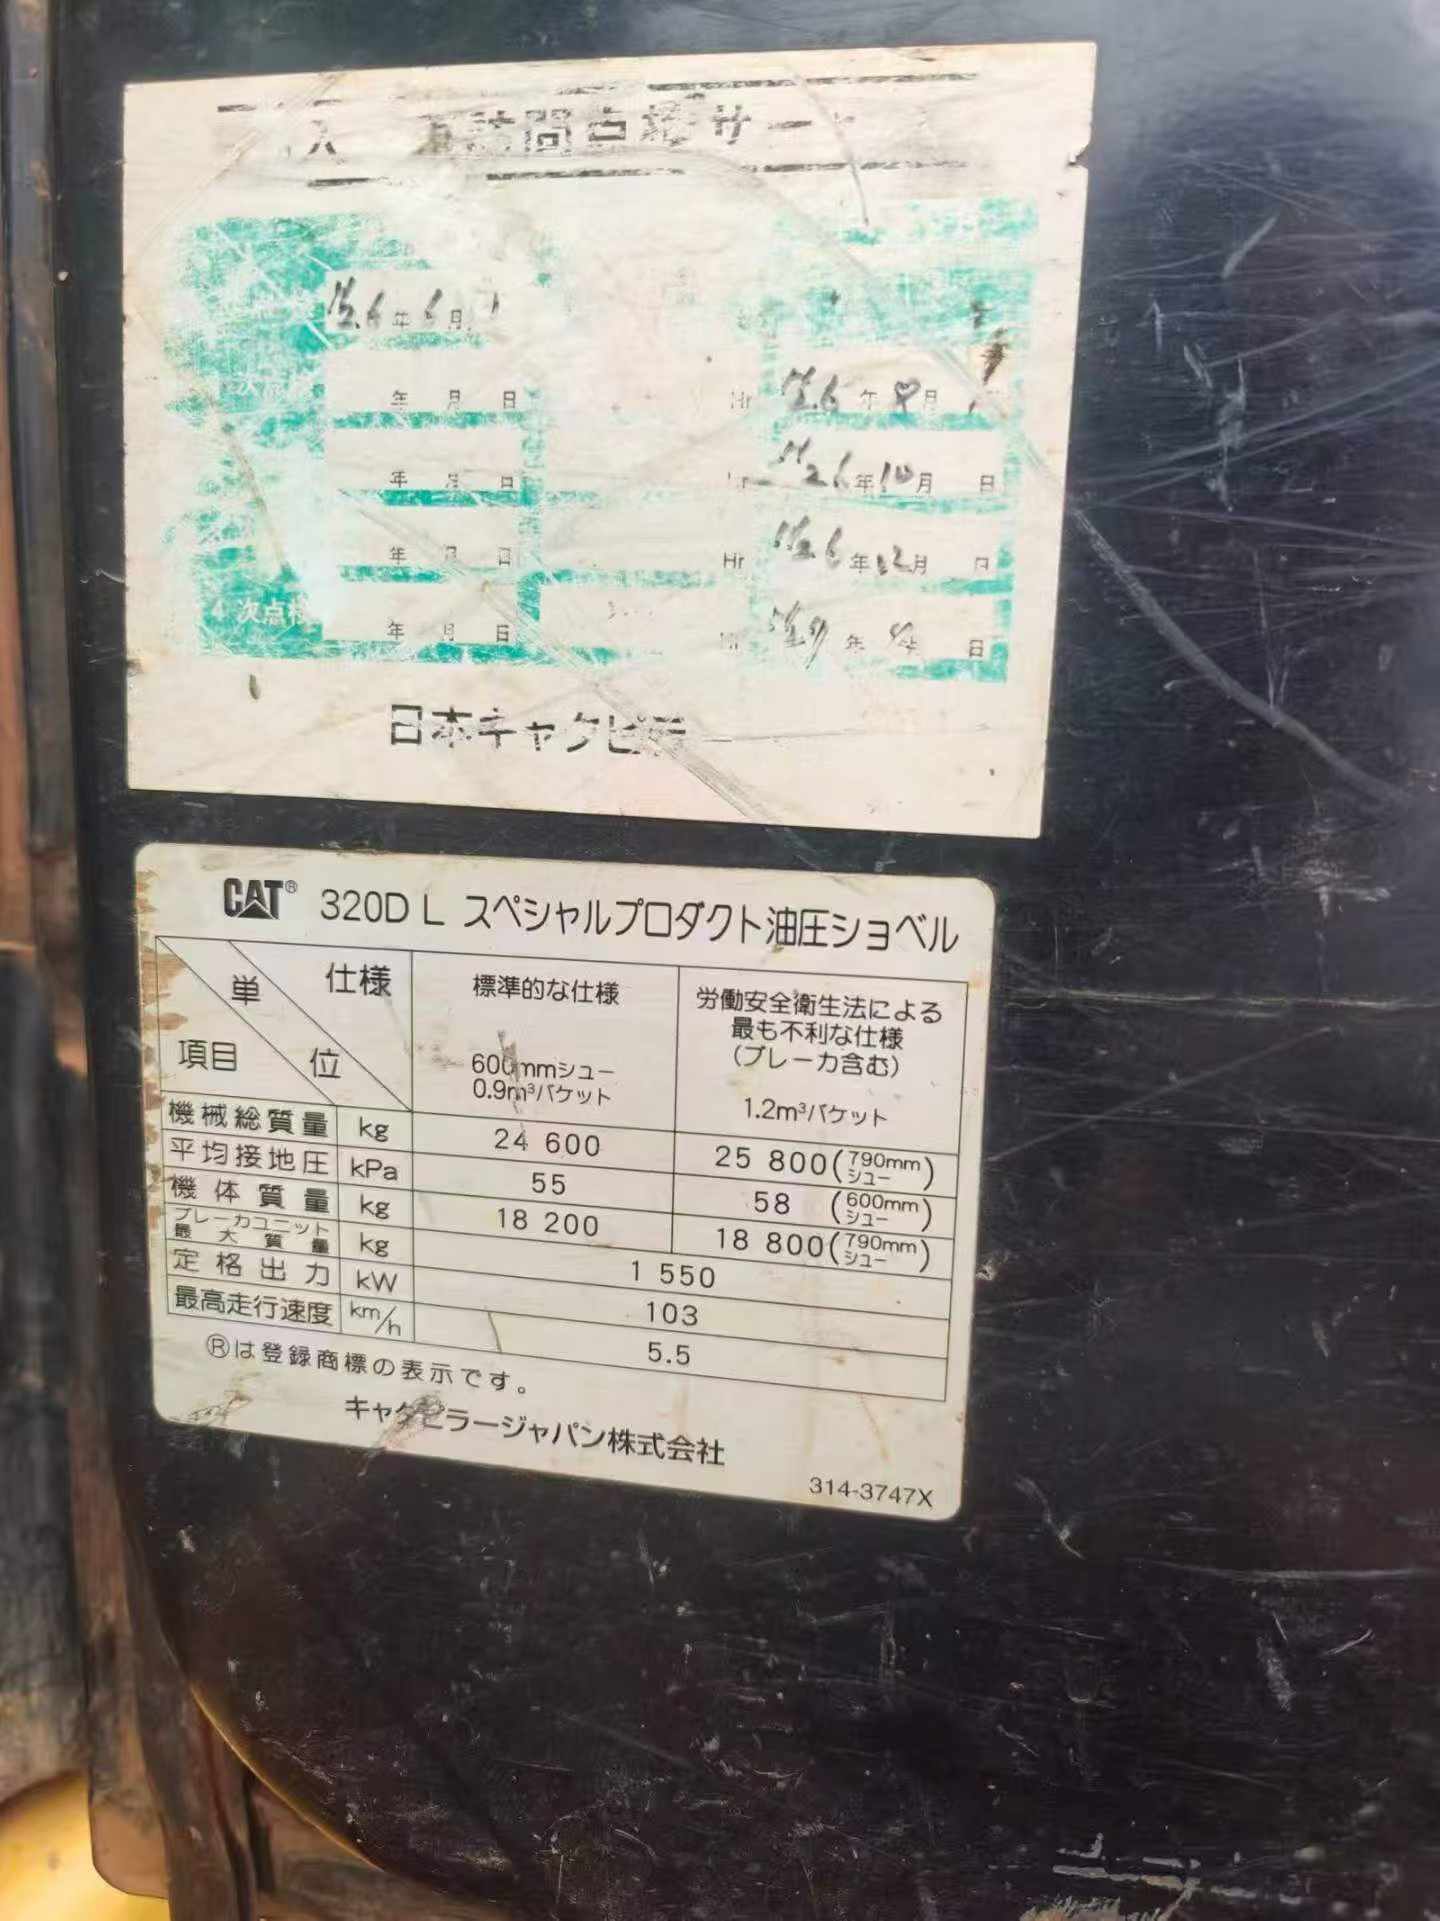 訪問点検サー
26年6月
年 月 日
Hr
26年8月
年 月 日
26年10月 日
年 月 日
Hr
26年12月 日
4次点検
年 月 日
年 日
日本キャタピラ
CAT® 320D L スペシャルプロダクト油圧ショベル
項目 単位 仕様
標準的な仕様
600mmシュー
0.9m³バケット
労働安全衛生法による
最も不利な仕様
(ブレーカ含む)
1.2m³バケット
機械総質量 kg 24 600 25 800(790mmシュー)
平均接地圧 kPa 55 58 (600mmシュー)
機体質量 kg 18 200 18 800(790mmシュー)
ブレーカユニット最大質量 kg 1 550
定格出力 kW 103
最高走行速度 km/h 5.5
®は登録商標の表示です。
キャタピラージャパン株式会社
314-3747X